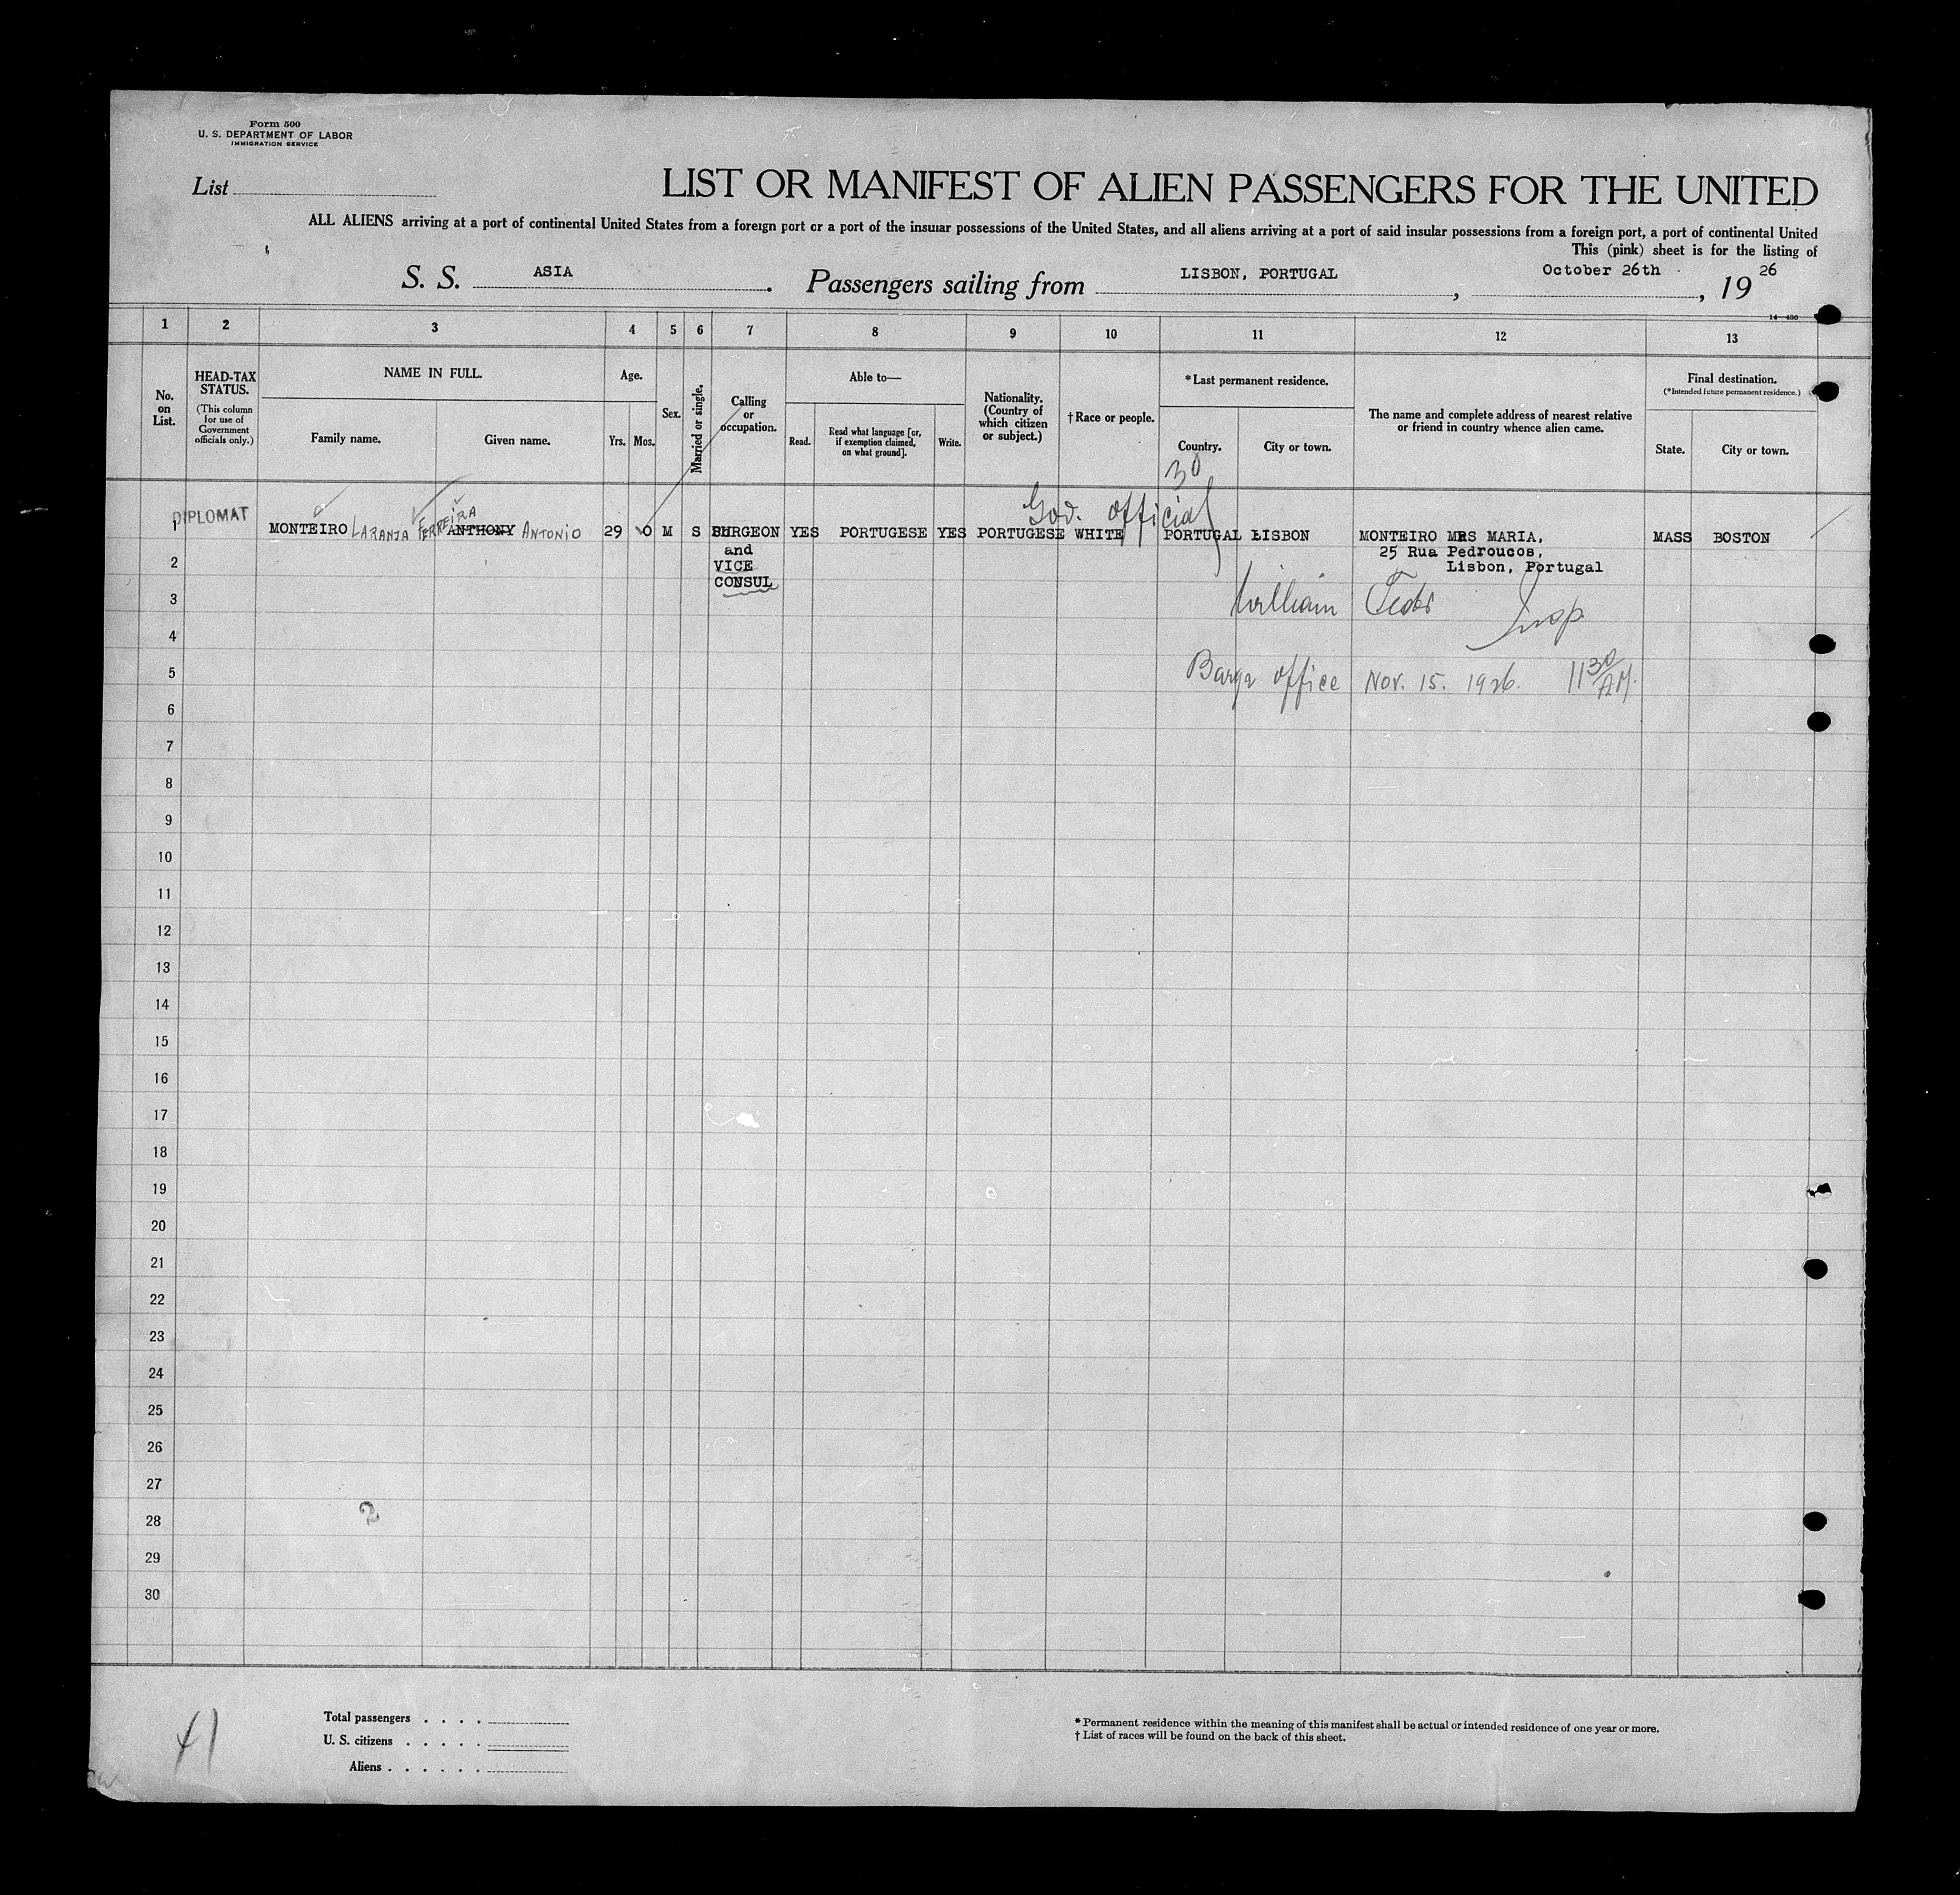 Form 500
U. S. DEPARTMENT OF LABOR
IMMIGRATION SERVICE
List
LIST OR MANIFEST OF ALIEN PASSENGERS FOR THE UNITED
ALL ALIENS arriving at a port of continental United States from a foreign port or a port of the insular possessions of the United States, and all aliens arriving at a port of said insular possessions from a foreign port, a port of continental United
This (pink) sheet is for the listing of
S. S. ASIA . Passengers sailing from LISBON, PORTUGAL , October 26th , 19 26
14—430
1 2 3 4 5 6 7 8 9 10 11 12 13
No. on List.
HEAD-TAX STATUS.
(This column for use of Government officials only.)
NAME IN FULL.
Family name.
Given name.
Age.
Yrs. Mos.
Sex.
Married or single.
Calling or occupation.
Able to—
Read.
Read what language [or, if exemption claimed, on what ground].
Write.
Nationality. (Country of which citizen or subject.)
†Race or people.
*Last permanent residence.
Country.
City or town.
The name and complete address of nearest relative or friend in country whence alien came.
Final destination.
(*Intended future permanent residence.)
State.
City or town.
30
Gov. official
1 DIPLOMAT MONTEIRO LARANJA FERREIRA ANTHONY ANTONIO 29 0 M S SURGEON YES PORTUGESE YES PORTUGESE WHITE PORTUGAL LISBON MONTEIRO MRS MARIA, MASS BOSTON
and 25 Rua Pedroucos,
2 VICE Lisbon, Portugal
CONSUL
3 William
Insp.
4
5 Barge office Nov. 15. 1926. 11 30 A.M.
6
7
8
9
10
11
12
13
14
15
16
17
18
19
20
21
22
23
24
25
26
27
28
29
30
41
Total passengers . . . .
U. S. citizens . . . . .
Aliens . . . . . .
* Permanent residence within the meaning of this manifest shall be actual or intended residence of one year or more.
† List of races will be found on the back of this sheet.